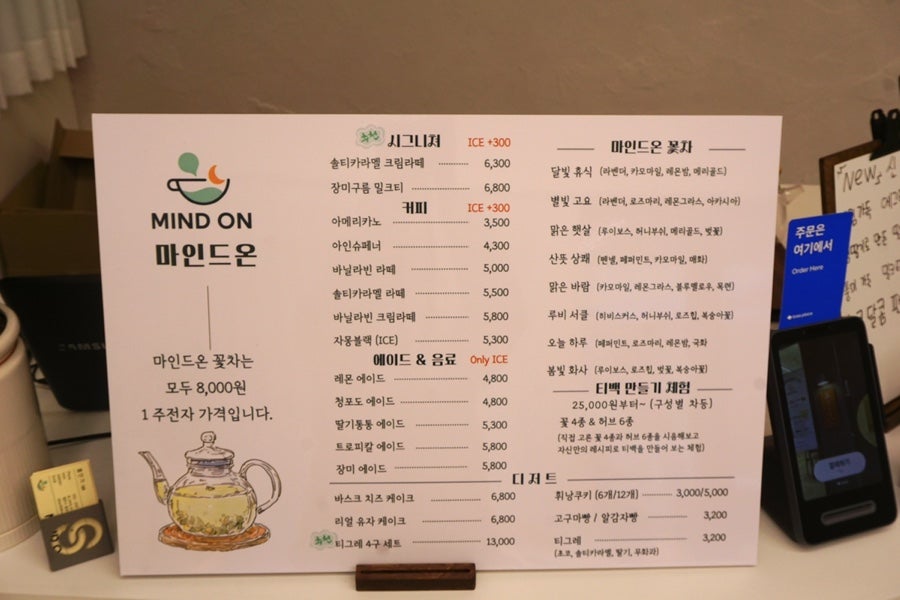 MIND ON
마인드온
마인드온 꽃차는
모두 8,000원
1 주전자 가격입니다.
추천 시그니처 ICE +300
솔티카라멜 크림라떼 6,300
장미구름 밀크티 6,800
커피 ICE +300
아메리카노 3,500
아인슈페너 4,300
바닐라빈 라떼 5,000
솔티카라멜 라떼 5,500
바닐라빈 크림라떼 5,800
자몽블랙 (ICE) 5,300
에이드 & 음료 Only ICE
레몬 에이드 4,800
청포도 에이드 4,800
딸기통통 에이드 5,300
트로피칼 에이드 5,800
장미 에이드 5,800
마인드온 꽃차
달빛 휴식 (라벤더, 카모마일, 레몬밤, 메리골드)
별빛 고요 (라벤더, 로즈마리, 레몬그라스, 아카시아)
맑은 햇살 (루이보스, 허니부쉬, 메리골드, 벚꽃)
산뜻 상쾌 (펜넬, 페퍼민트, 카모마일, 매화)
맑은 바람 (카모마일, 레몬그라스, 블루멜로우, 목련)
루비 서클 (히비스커스, 허니부쉬, 로즈힙, 복숭아꽃)
오늘 하루 (페퍼민트, 로즈마리, 레몬밤, 국화
봄빛 화사 (루이보스, 로즈힙, 벚꽃, 복숭아꽃)
티백 만들기 체험
25,000원부터~ (구성별 차등)
꽃 4종 & 허브 6종
(직접 고른 꽃 4종과 허브 6종을 시음해보고
자신만의 레시피로 티백을 만들어 보는 체험)
디저트
바스크 치즈 케이크 6,800
리얼 유자 케이크 6,800
추천 티그레 4구 세트 13,000
휘낭쿠키 (6개/12개) 3,000/5,000
고구마빵 / 알감자빵 3,200
티그레 3,200
(초코, 솔티카라멜, 딸기, 무화과)
주문은
여기에서
Order Here
SAMSU
New